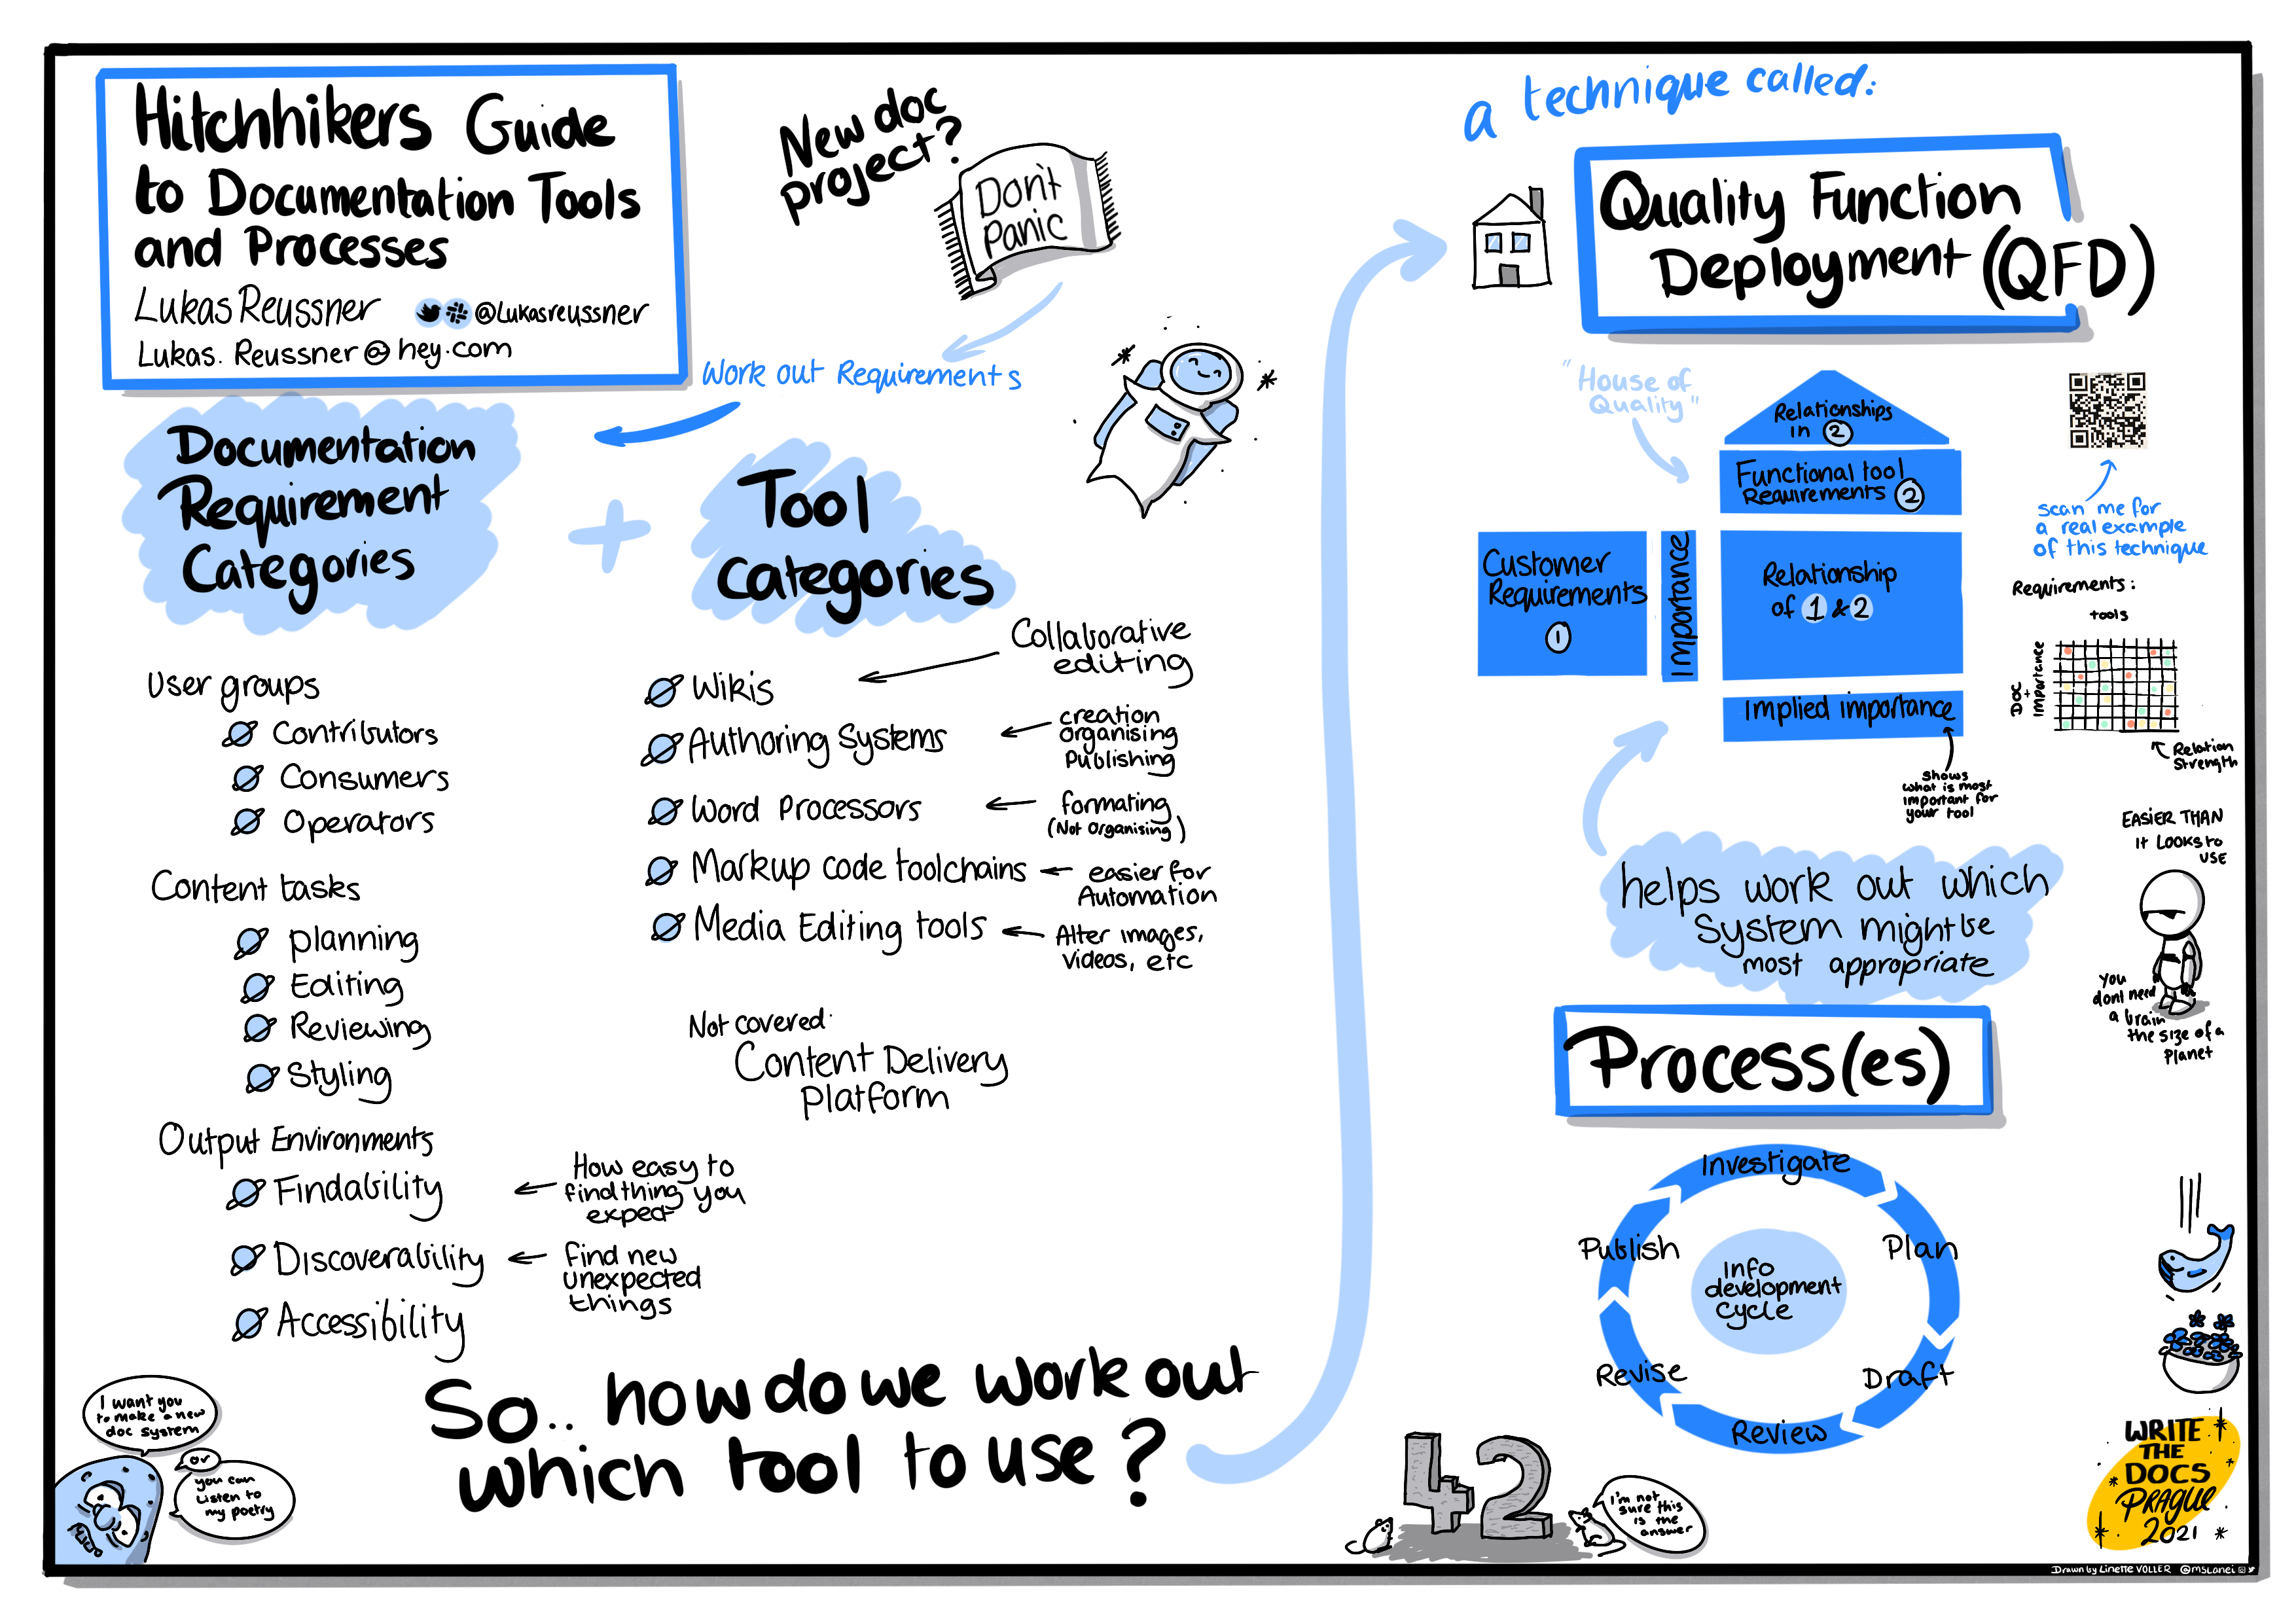 Hitchhikers Guide
to Documentation Tools
and Processes
Lukas Reussner @Lukasreussner
Lukas.Reussner@hey.com
New doc
project?
Don't
Panic
Work out Requirements
Documentation
Requirement
Categories
+
Tool
categories
User groups
Contributors
Consumers
Operators
Content tasks
planning
Editing
Reviewing
Styling
Output Environments
Findability
How easy to
find thing you
expect
Discoverability
find new
unexpected
things
Accessibility
Wikis
Collaborative
editing
Authoring Systems
creation
organising
Publishing
Word Processors
formating
(Not Organising)
Markup code toolchains
easier for
Automation
Media Editing tools
Alter images,
videos, etc
Not covered:
Content Delivery
Platform
I want you
to make a new
doc system
or
you can
Listen to
my poetry
So.. how do we work out
which tool to use?
a technique called:
Quality Function
Deployment (QFD)
"House of
Quality"
Relationships
in 2
Functional tool
Requirements 2
Customer
Requirements
1
Importance
Relationship
of 1 & 2
Implied importance
shows
what is most
important for
your tool
scan me for
a real example
of this technique
Requirements:
tools
Doc
+
importance
Relation
Strength
EASIER THAN
it Looks to
USE
you
dont need
a brain
the size of a
Planet
helps work out which
System might be
most appropriate
Process(es)
Investigate
Plan
Draft
Review
Revise
Publish
Info
development
cycle
42
I'm not
sure this
is the
answer
WRITE
THE
DOCS
PRAGUE
2021
Drawn by Linette VOLLER @mslanei